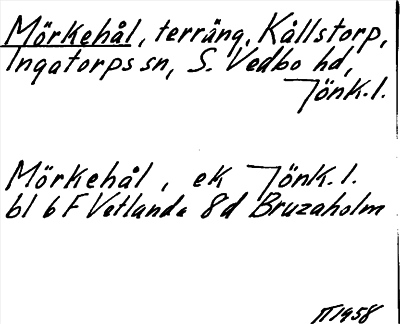 Mörkehål, terräng, Kållstorp,
Ingatorps sn, S. Vedbo hd,
Jönk. l.
Mörkehål, ek Jönk. l.
bl 6 F Vetlanda 8d Bruzaholm
1958